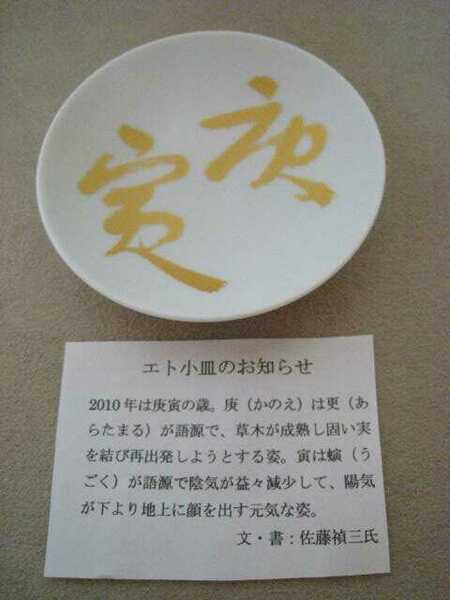 庚
寅
エト小皿のお知らせ
2010年は庚寅の歳。庚（かのえ）は更（あ
らたまる）が語源で、草木が成熟し固い実
を結び再出発しようとする姿。寅は螾（う
ごく）が語源で陰気が益々減少して、陽気
が下より地上に顔を出す元気な姿。
文・書：佐藤禎三氏